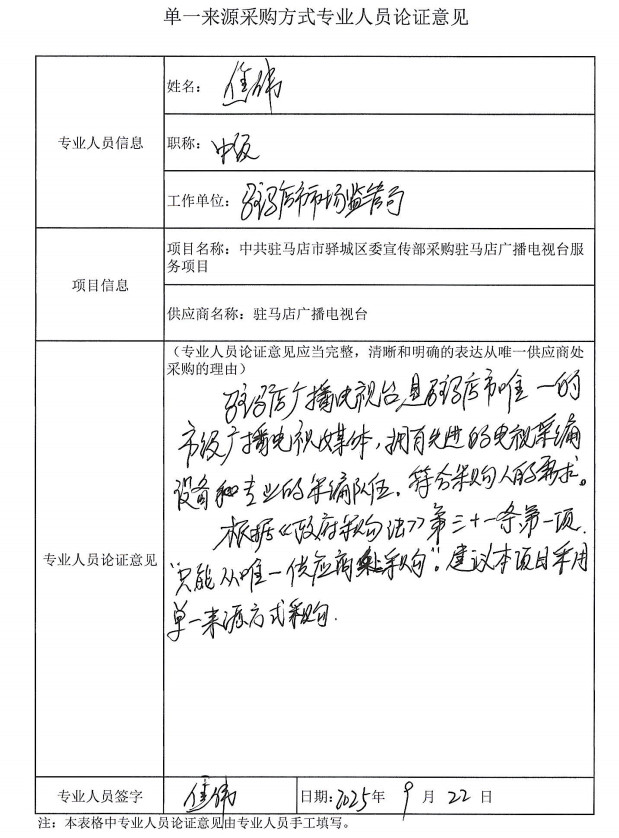 单一来源采购方式专业人员论证意见
专业人员信息
姓名：焦伟
职称：中级
工作单位：驻马店市市场监管局
项目信息
项目名称：中共驻马店市驿城区委宣传部采购驻马店广播电视台服
务项目
供应商名称：驻马店广播电视台
专业人员论证意见
（专业人员论证意见应当完整，清晰和明确的表达从唯一供应商处
采购的理由）
驻马店广播电视台是驻马店市唯一的
市级广播电视媒体，拥有先进的电视采编
设备和专业的采编队伍．符合采购人的需求。
根据《政府采购法》第三十一条第一项．
“只能从唯一供应商处采购”．建议本项目采用
单一来源方式采购．
专业人员签字
焦伟
日期：2025年 9 月 22 日
注：本表格中专业人员论证意见由专业人员手工填写。